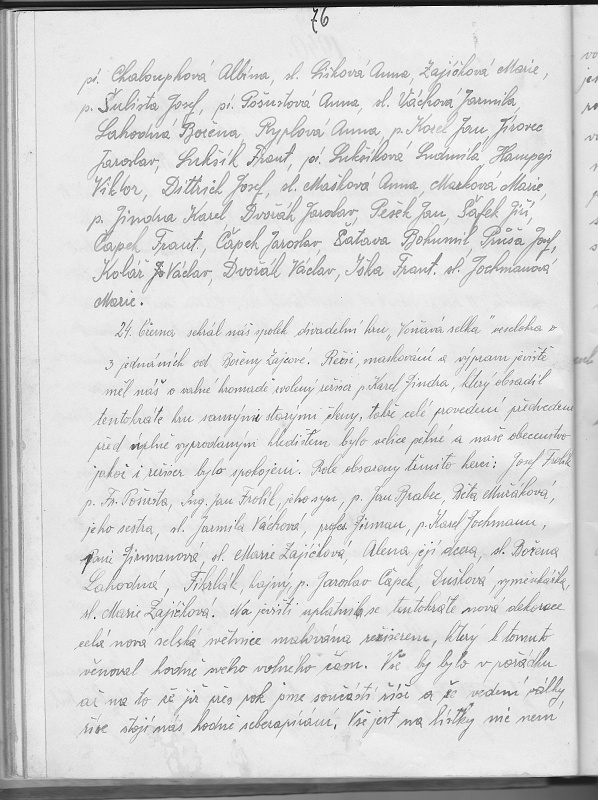 76
pí. Chaloupková Albína, sl. Lišková Anna, Zajíčková Marie,
p. Šulista Josef, pí. Pošustová Anna, sl. Váchová Jarmila,
Lahodná Božena, Ryplová Anna, p. Korel Jan, Jírovec
Jaroslav, Lukšík Frant, pí. Lukšíková Ludmila, Hampejs
Viktor, Dittrich Josef, sl. Mašková Anna, Markova Marie,
p. Jindra Karel, Dvořák Jaroslav, Pešek Jan, Šafek Jiří,
Čapek Frant, Čapek Jaroslav, Šatava Bohumil, Průša Josef,
Kolář Václav, Dvořák Václav, Jška Frant. sl. Jochmanová
Marie.
24. června sehrál náš spolek divadelní hru "Voňavá selka" veselohra o
3 jednáních od Boženy Zajcové. Režii, maskování a výpravu jeviště
měl náš o valné hromadě zvolený režisér p. Karel Jindra, který obsadil
tentokráte hru samými starými členy, takže celé provedení předvedené
před úplně vyprodaným hledištěm bylo velice pěkné a naše obecenstvo
jakož i režiser bylo spokojeni. Role obsazeny těmito herci: Josef
p. Fr. Pošusta, Ing. Jan jeho syn, p. Jan Brabec, Běta Muráková,
jeho sestra, sl. Jarmila Váchová, profes. Firman, p. Karel Jochmann,
Paní Firmanova sl. Marie Zajíčková, Alena její dcera, sl. Božena
Lahodná, hajný, p. Jaroslav Čapek, Dušková, výměnkářka,
sl. Marie Zajíčkova. Na jevišti uplatnila se tentokráte nová dekorace
celá nová selská světnice malována režiserem, který k tomuto
věnoval hodně svého volného času. Vše by bylo v pořádku
až na to že již přes rok jsme součástí říše a že vedení války,
říše stojí nás hodně sebezapírání. Vše jest na lístky nic není